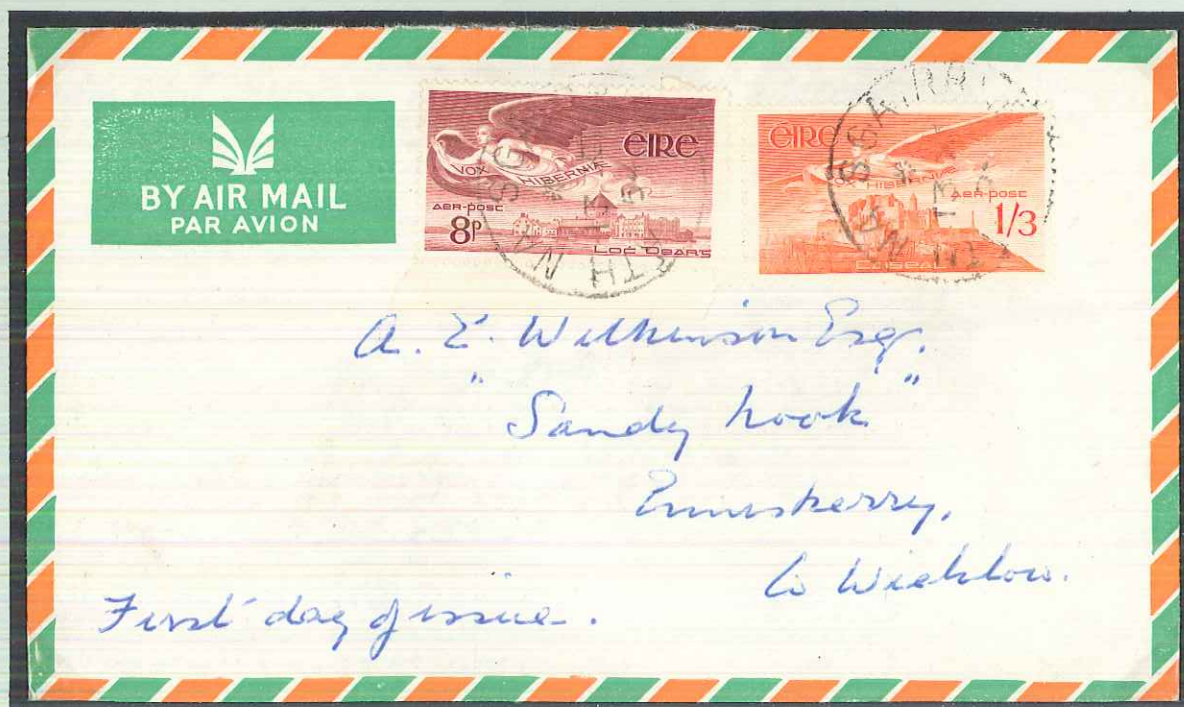 BY AIR MAIL
PAR AVION
ÉIRE
VOX HIBERNIÆ
AER-POST
8P
ÉIRE
HIBERNIÆ
AER-POST
1/3
CAISEAL
A. E. Wilkinson Esq.
"Sandy hook"
Enniskerry,
Co Wicklow.
First day of issue.